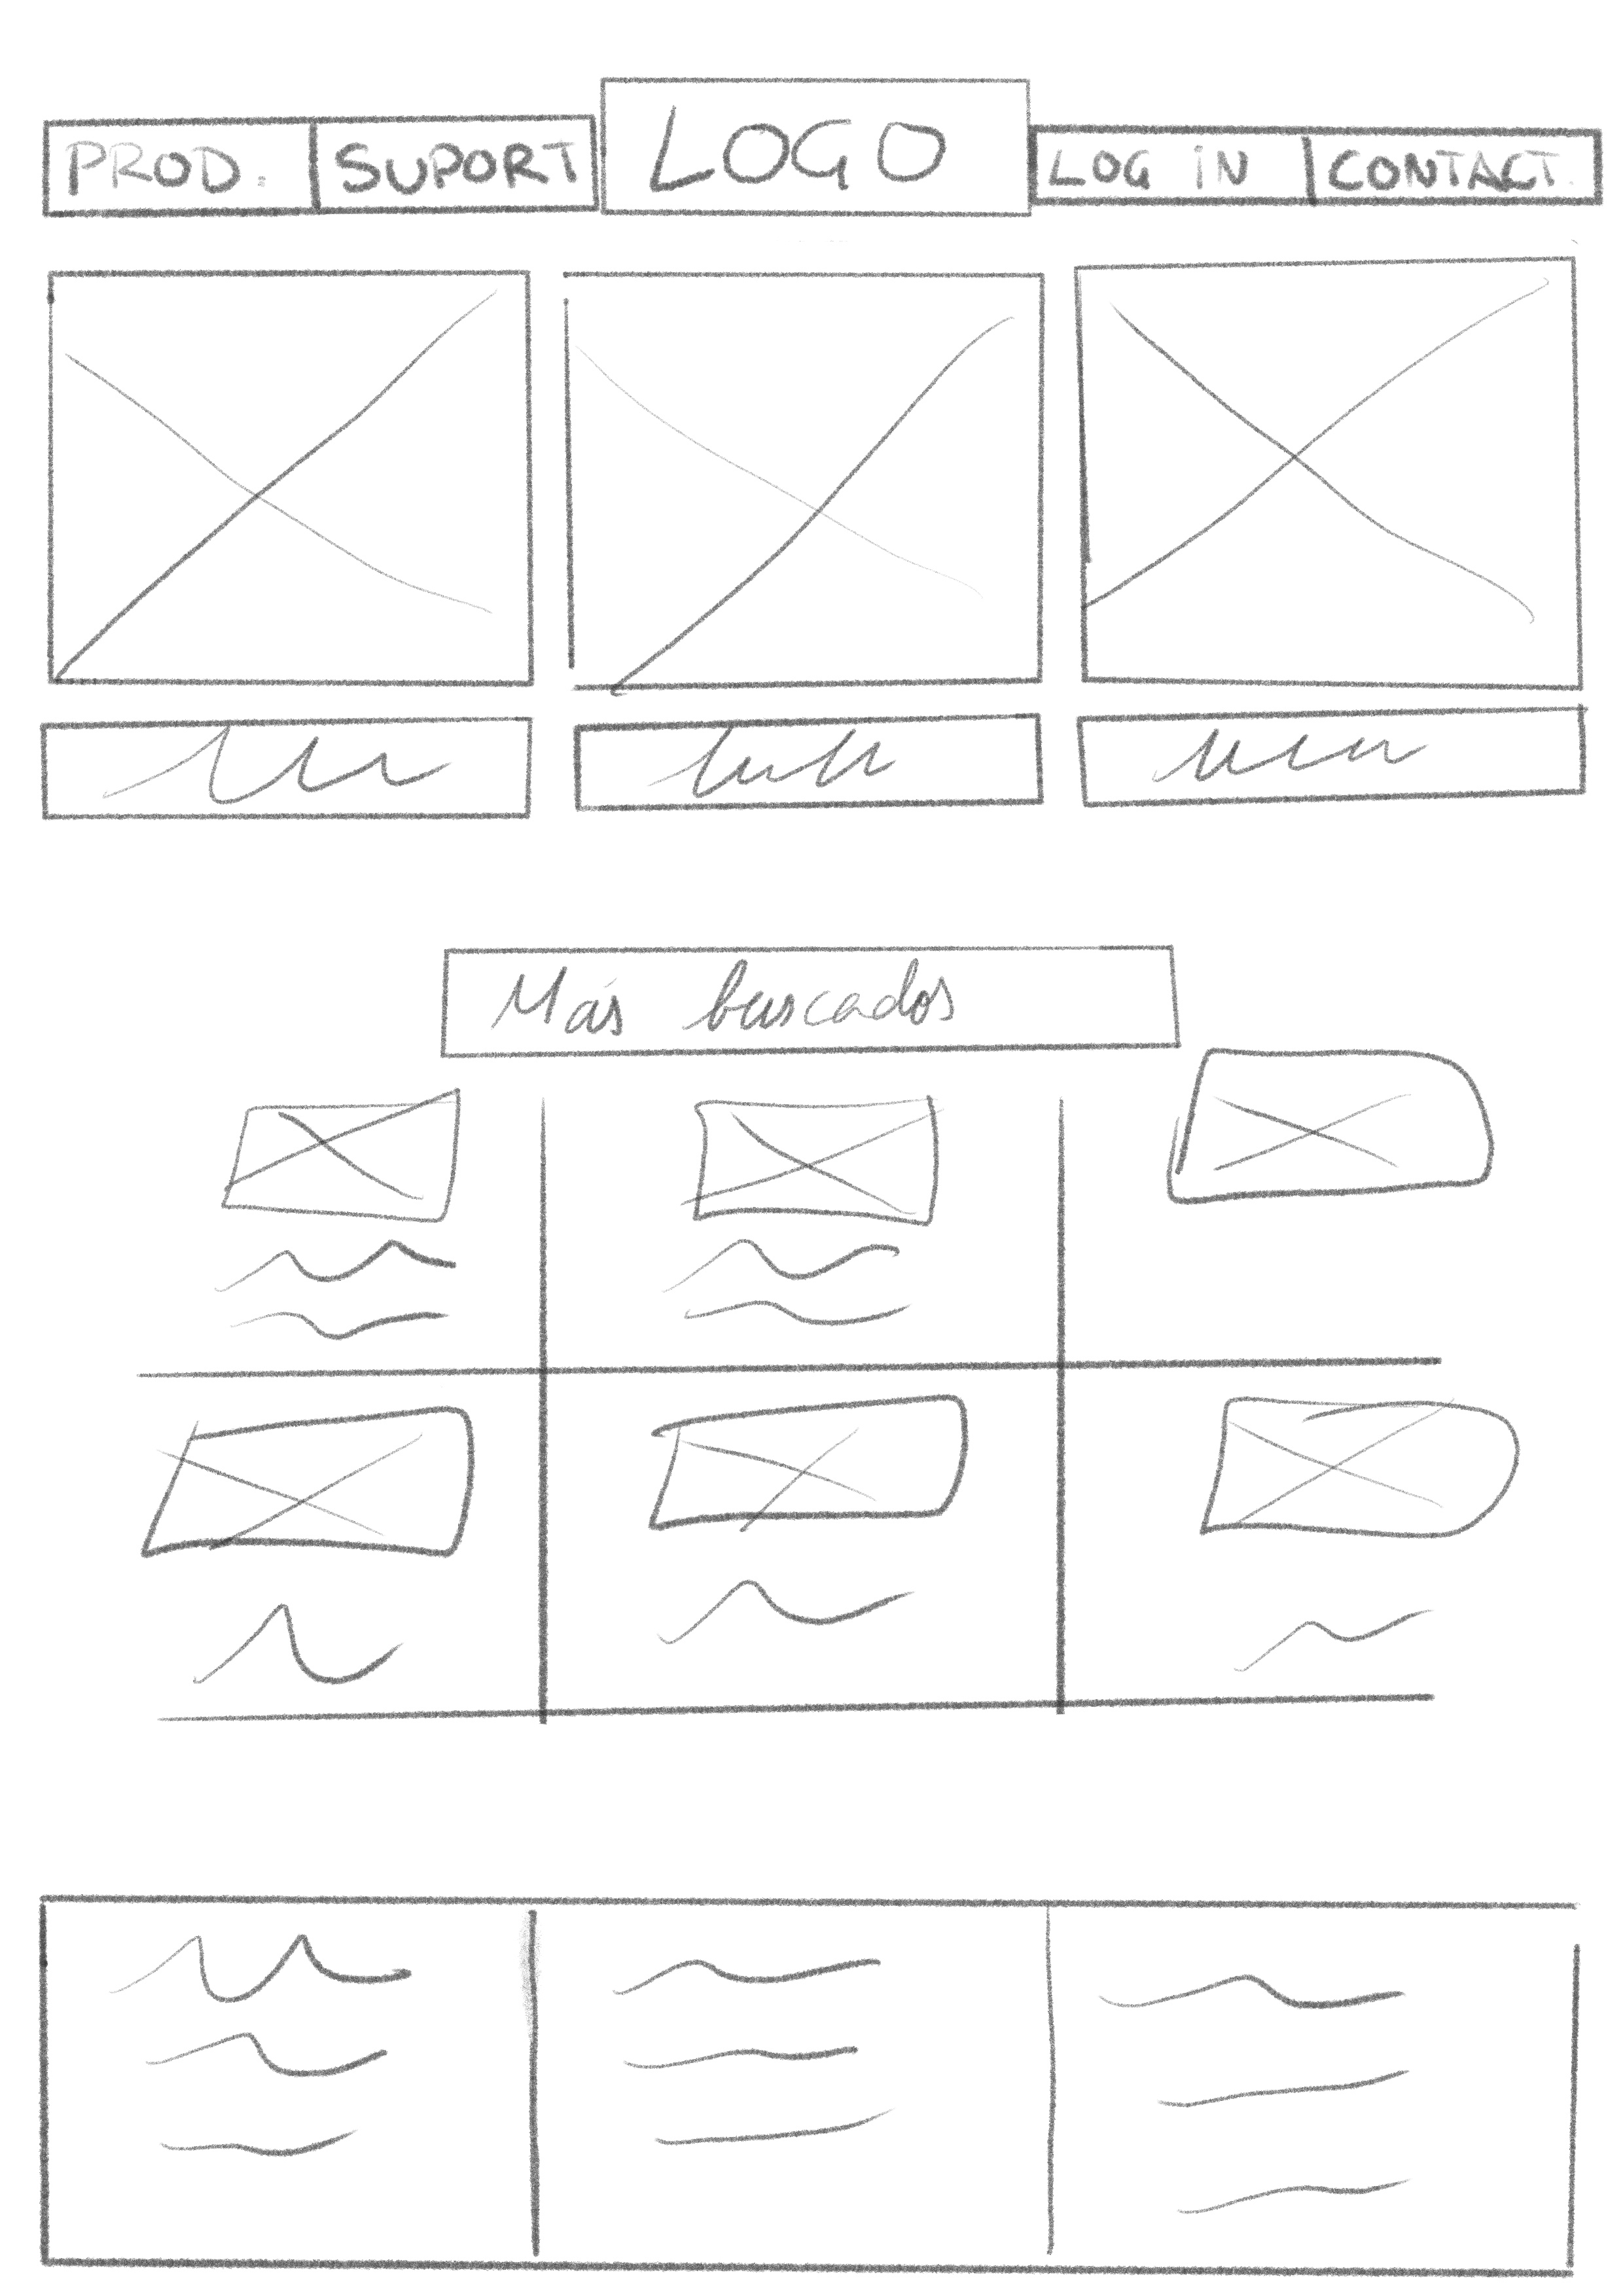 PROD. SUPORT LOGO LOG IN CONTACT.
Más buscados